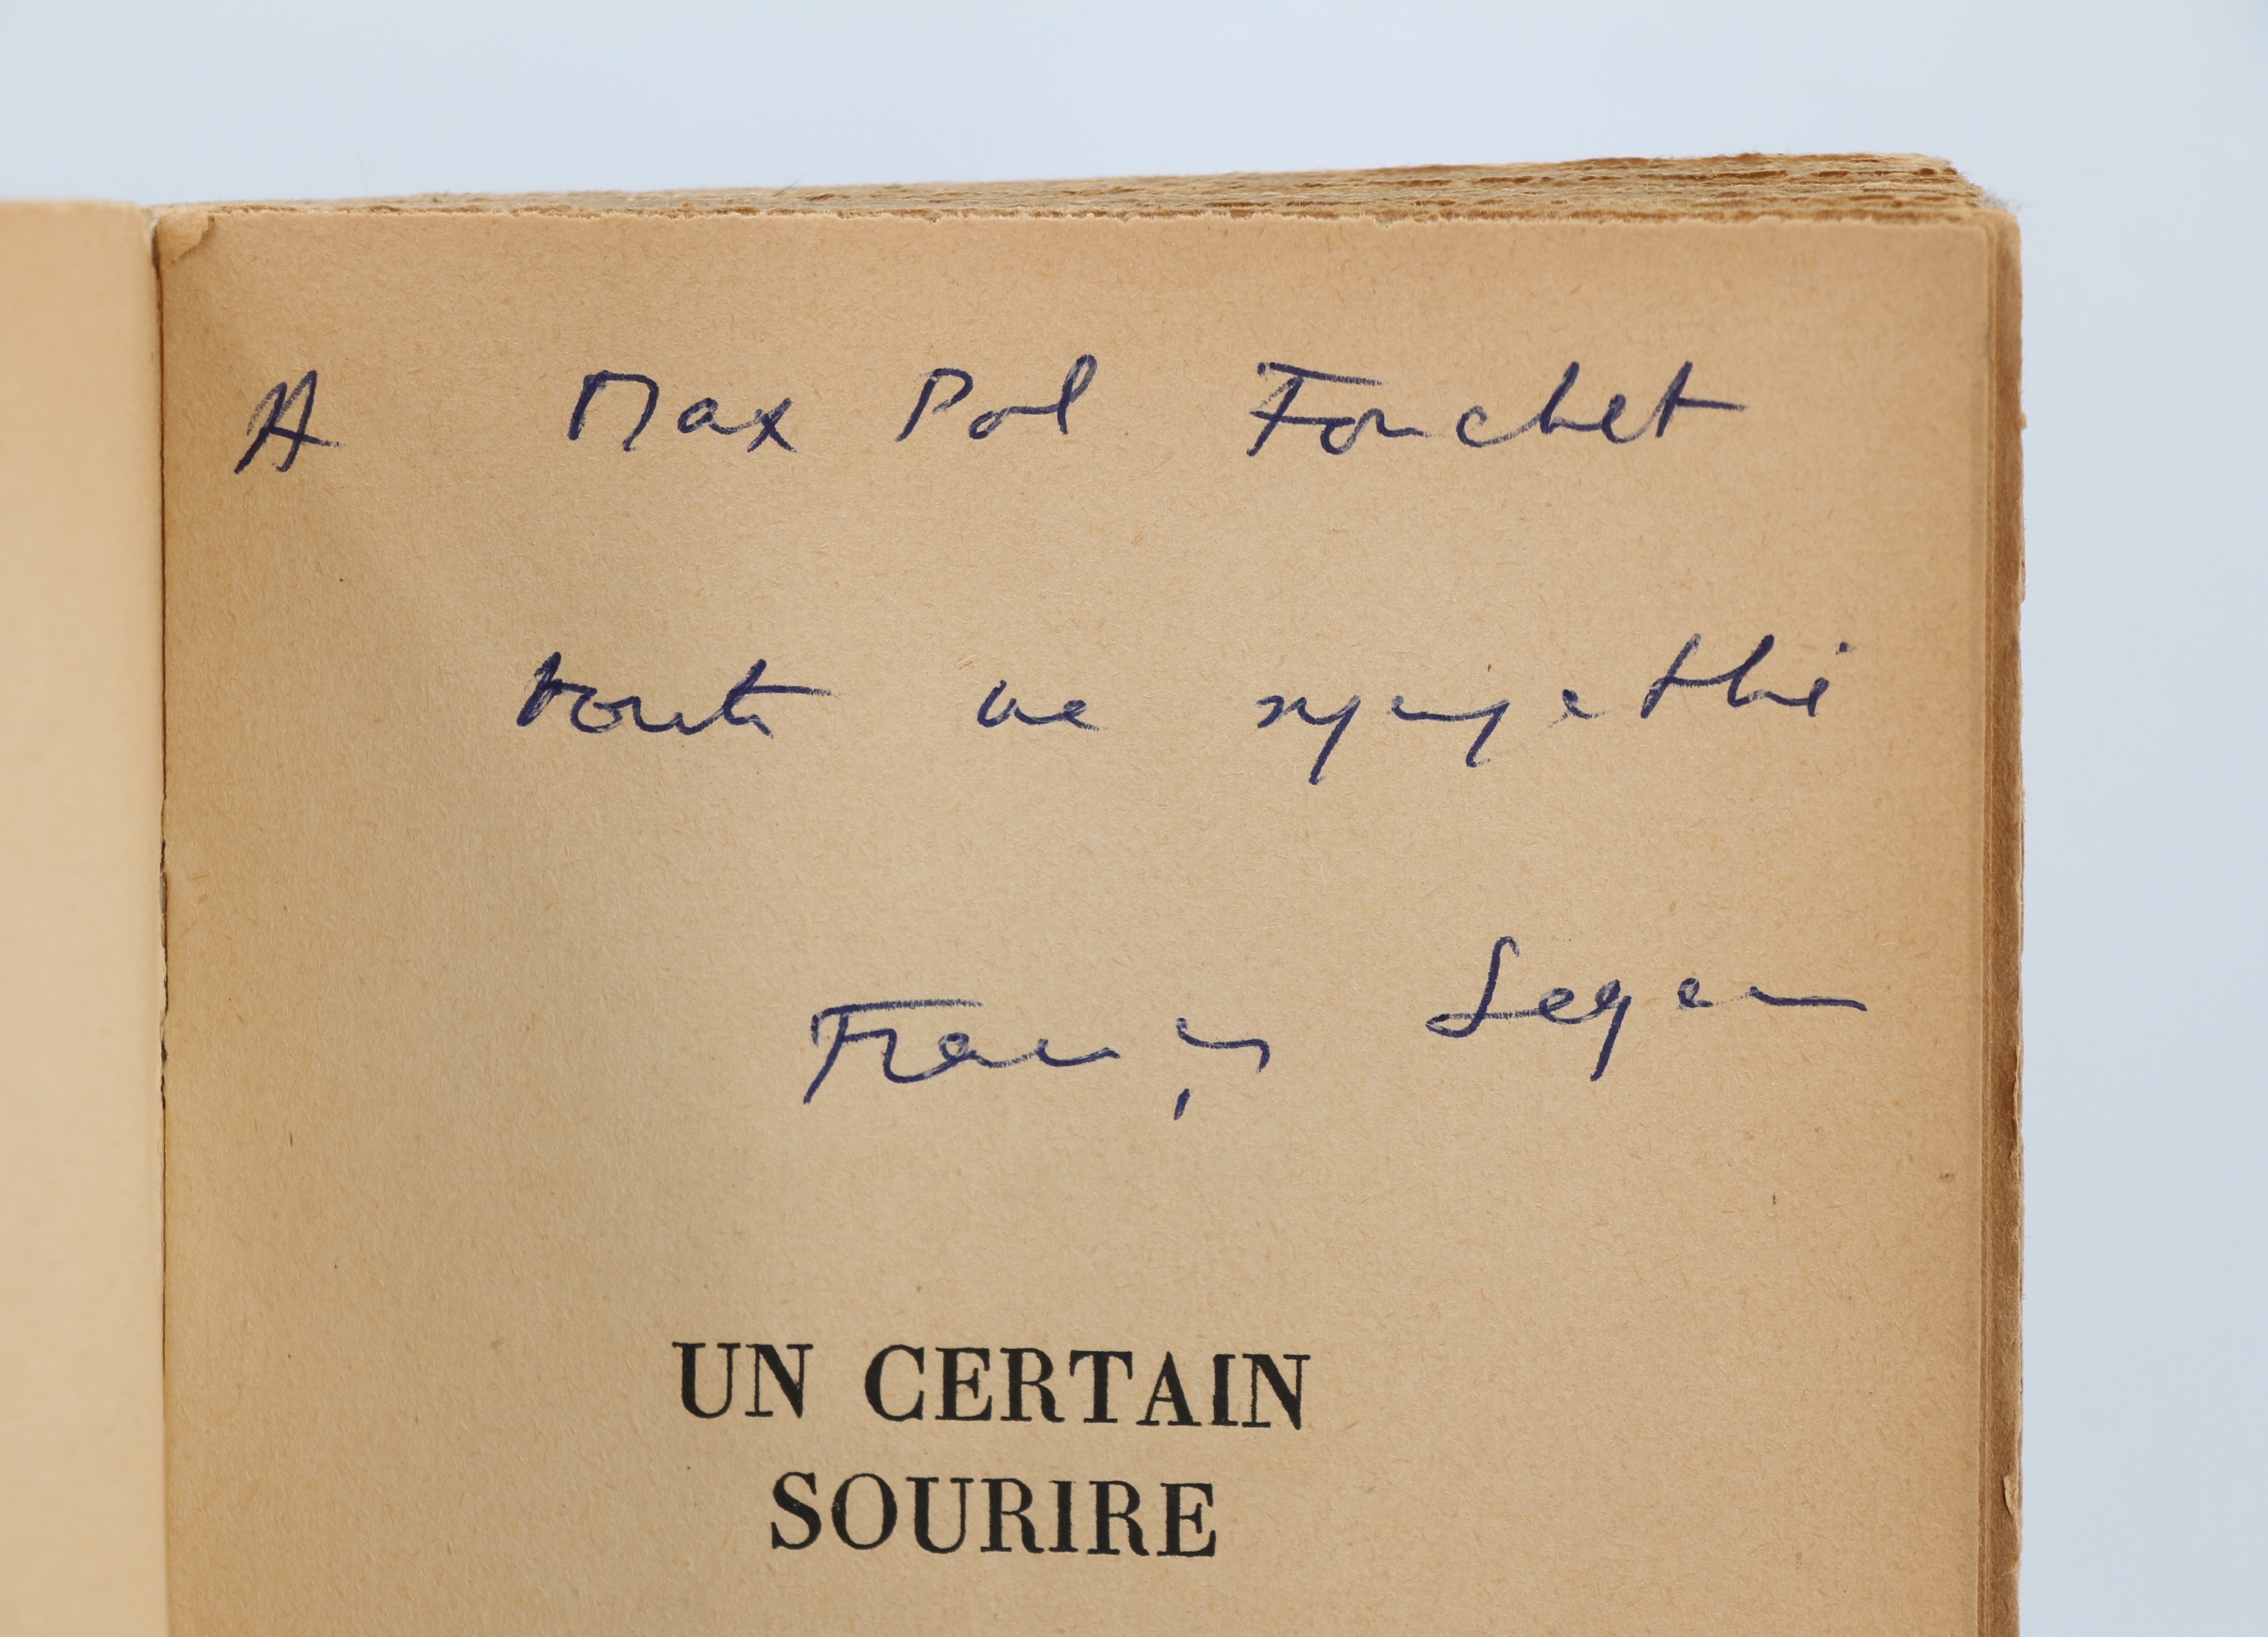 A Max Pol Fouchet
toute ma sympathie
Françoise Sagan
UN CERTAIN
SOURIRE